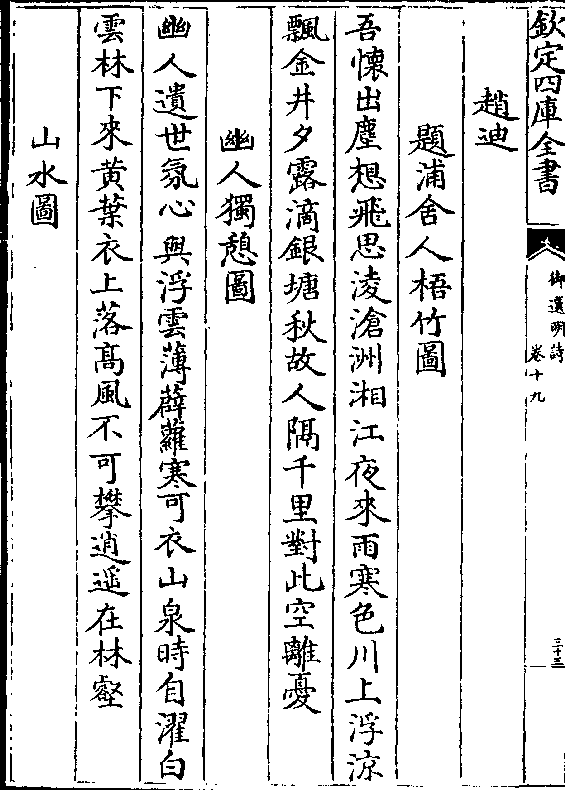 欽定四庫全書
御選明詩
卷十九
三十三
趙迪
題浦舍人梧竹圖
吾懷出塵想飛思凌滄洲湘江夜來雨寒色川上浮涼
飄金井夕露滴銀塘秋故人隔千里對此空離憂
幽人獨憩圖
幽人遺世氛心與浮雲薄薜蘿寒可衣山泉時自濯白
雲林下來黃葉衣上落高風不可攀逍遥在林壑
山水圖